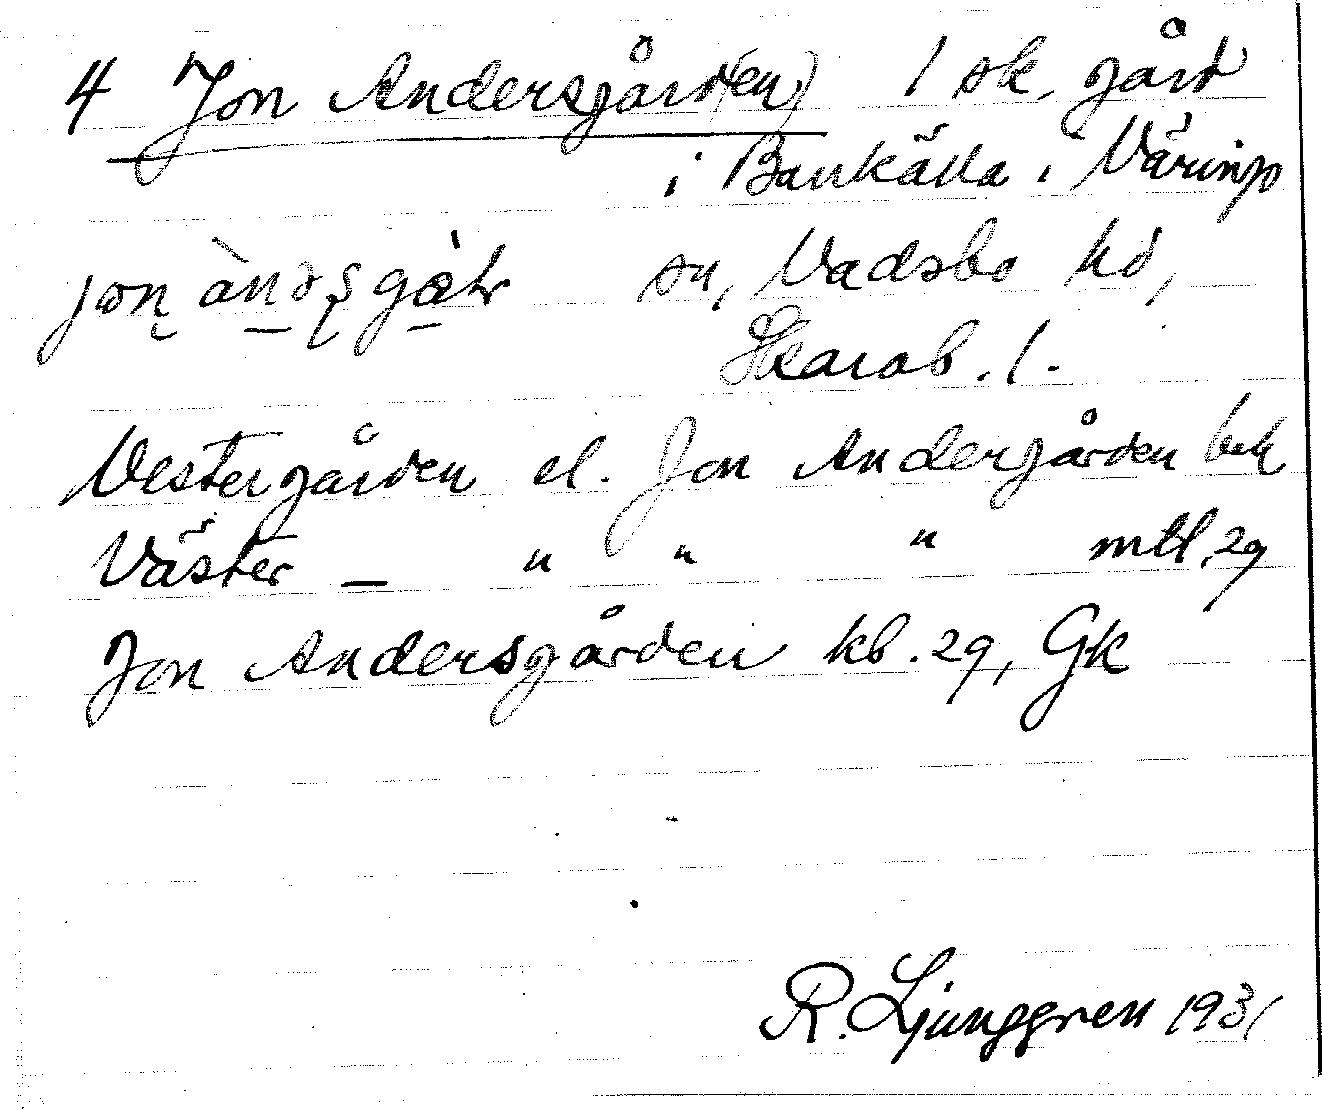 4 Jon Andersgård(en) 1 sk. gård
i Bankälla i Värings
jon àndȩsgɑ̀ḷr sn, Vadsbo hd,
Skarab. l.
Vestergården el. Jon Andergården bek
Väster — " " " mtl. 29
Jon Andersgården kb. 29, Gk
R. Ljunggren 1931